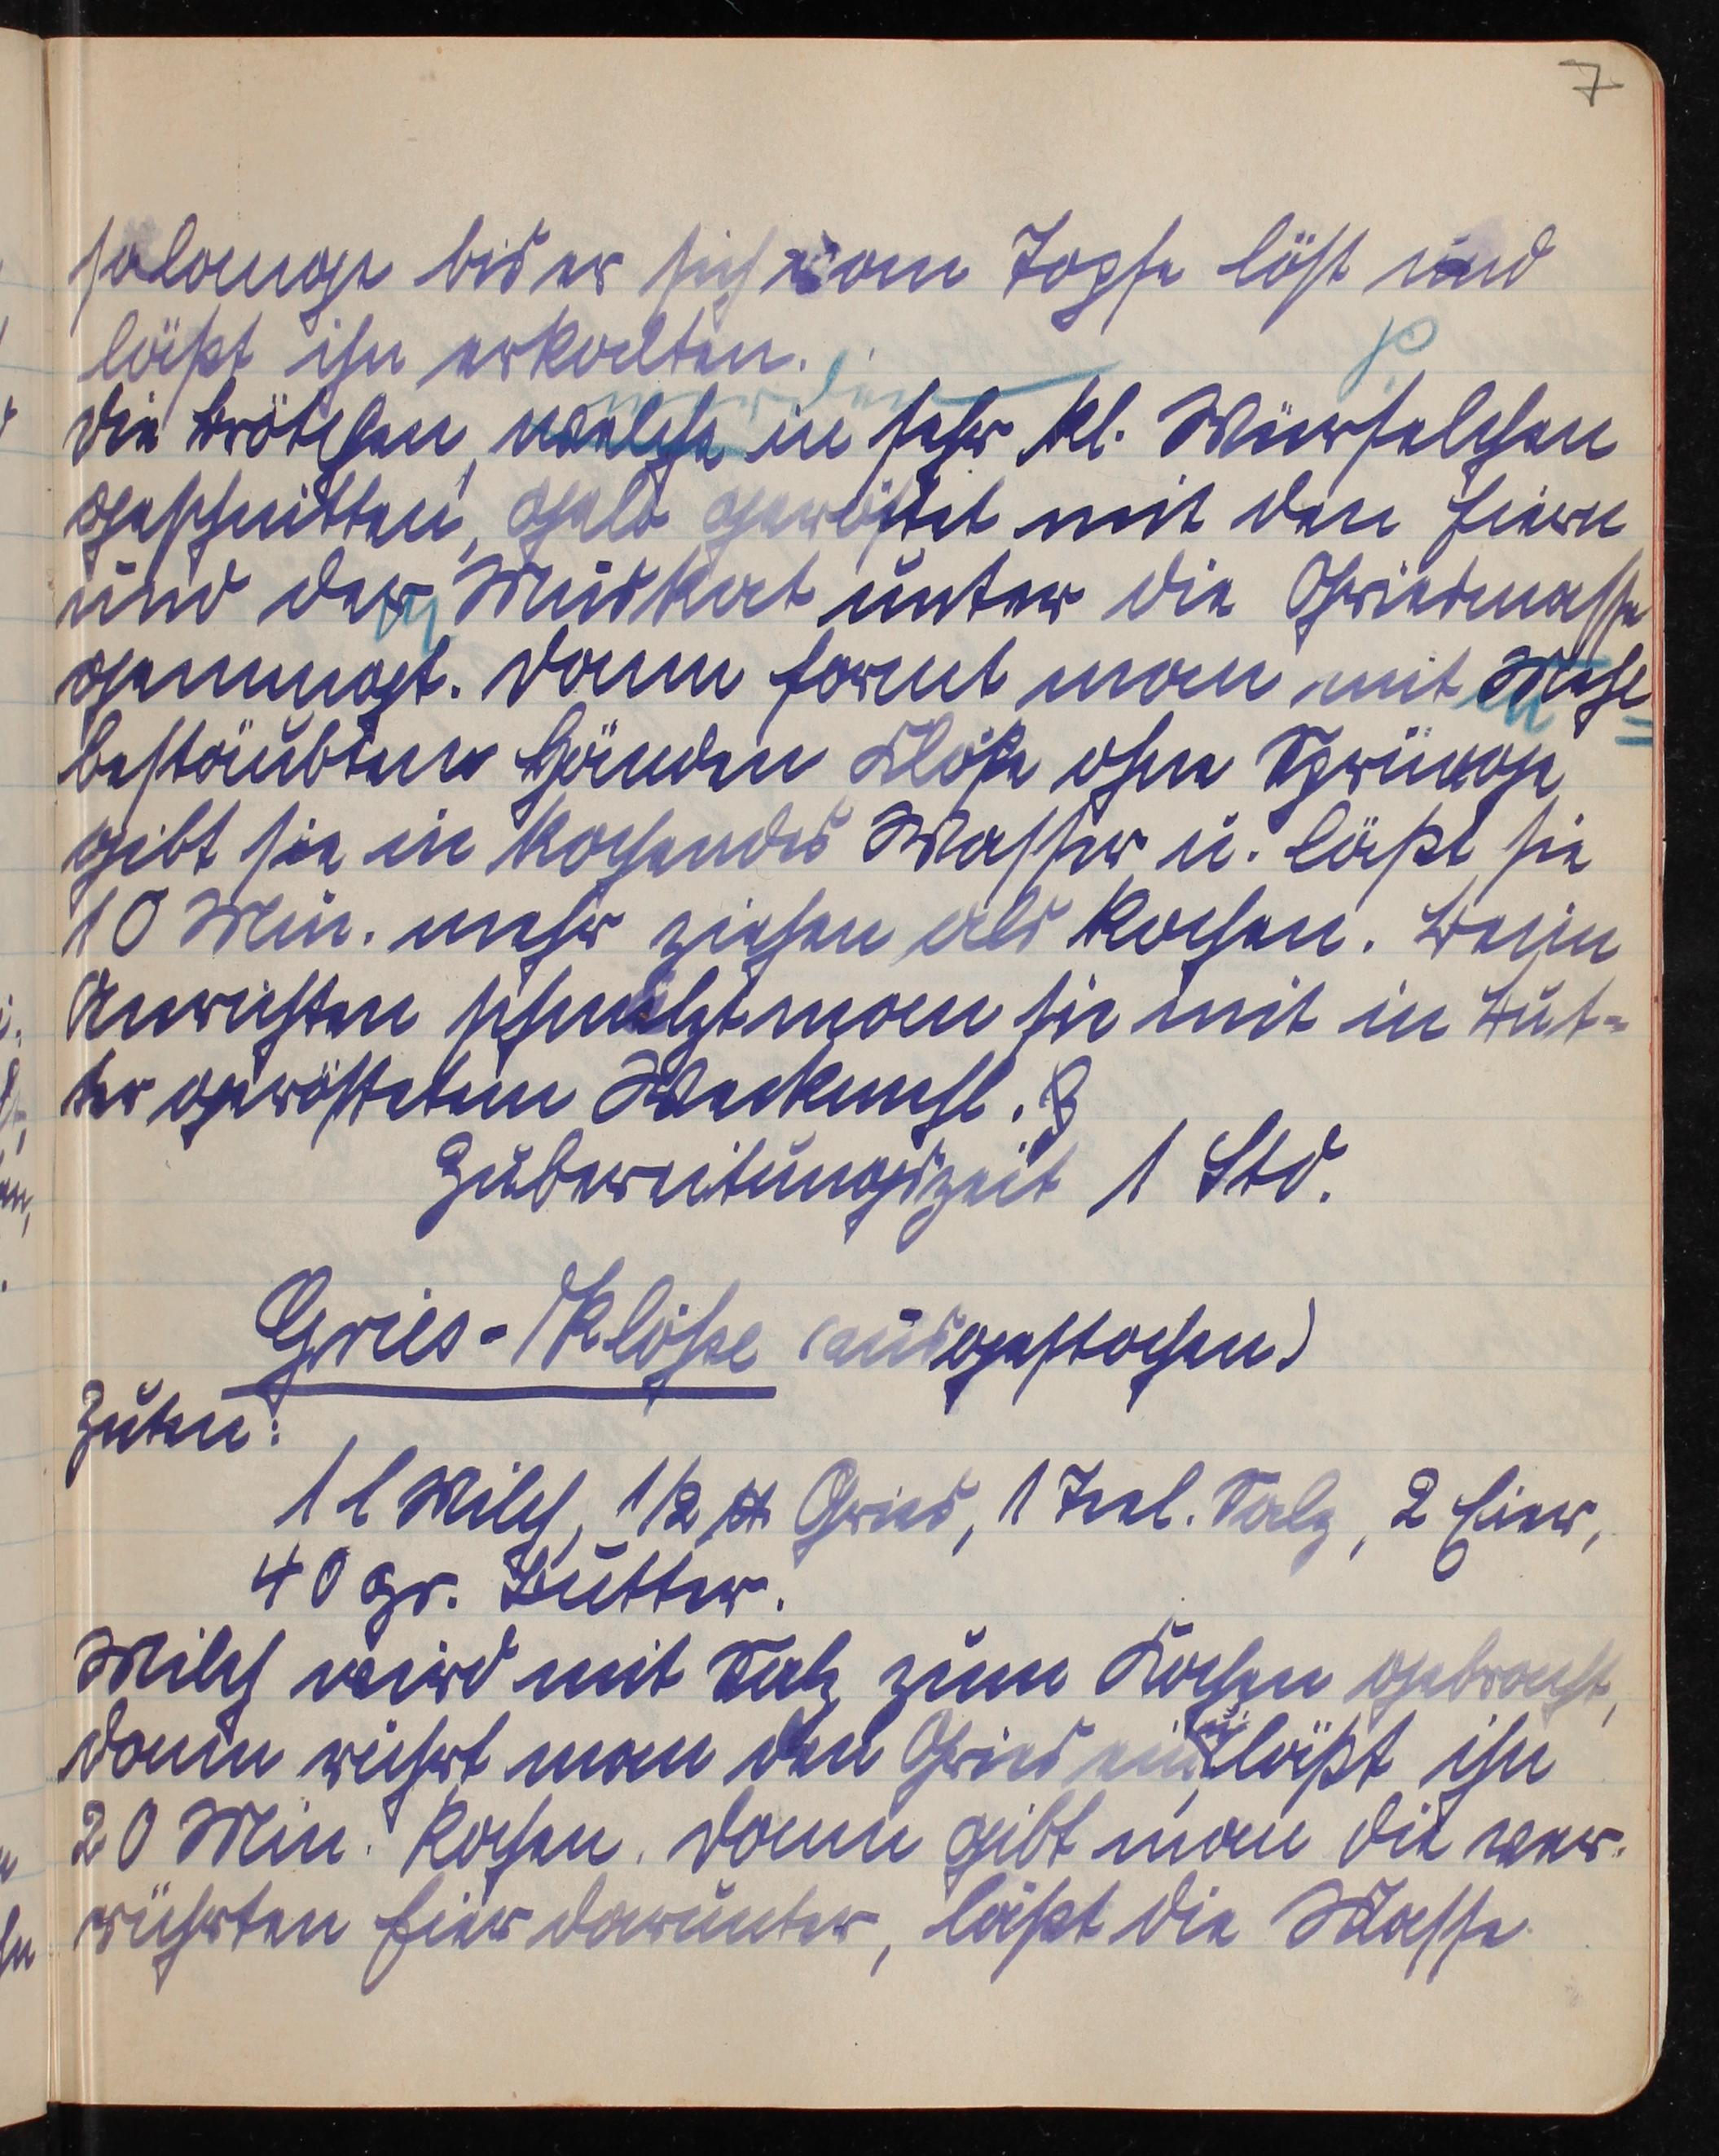 7
solange bis er sich vom Topfe löst und
läßt ihn erkalten.
werden
Die Brötchen, welche in sehr kl. Würfelchen
geschnitten, gelb geröstet mit den Eiern
und der Muskat unter die Griesmasse
gemengt. Dann formt man mit Mehl
bestäubten Händen Klöße ohne Sprünge
gibt sie in kochendes Wasser u. läßt sie
10 Min. mehr ziehen als kochen. Beim
Anrichten schmelzt man sie mit in But=
ter geröstetem Weckmehl.
Zubereitungszeit 1 Std.
Gries-Klöße (ausgestochen)
Zuten:
1 l Milch, 1/2 ℔ Gries, 1 Teel. Salz, 2 Eier,
40 gr. Butter.
Milch wird mit Salz zum Kochen gebracht,
dann rührt man den Gries ein, u. läßt ihn
20 Min. kochen. Dann gibt man die ver-
rührten Eier darunter, läßt die Masse